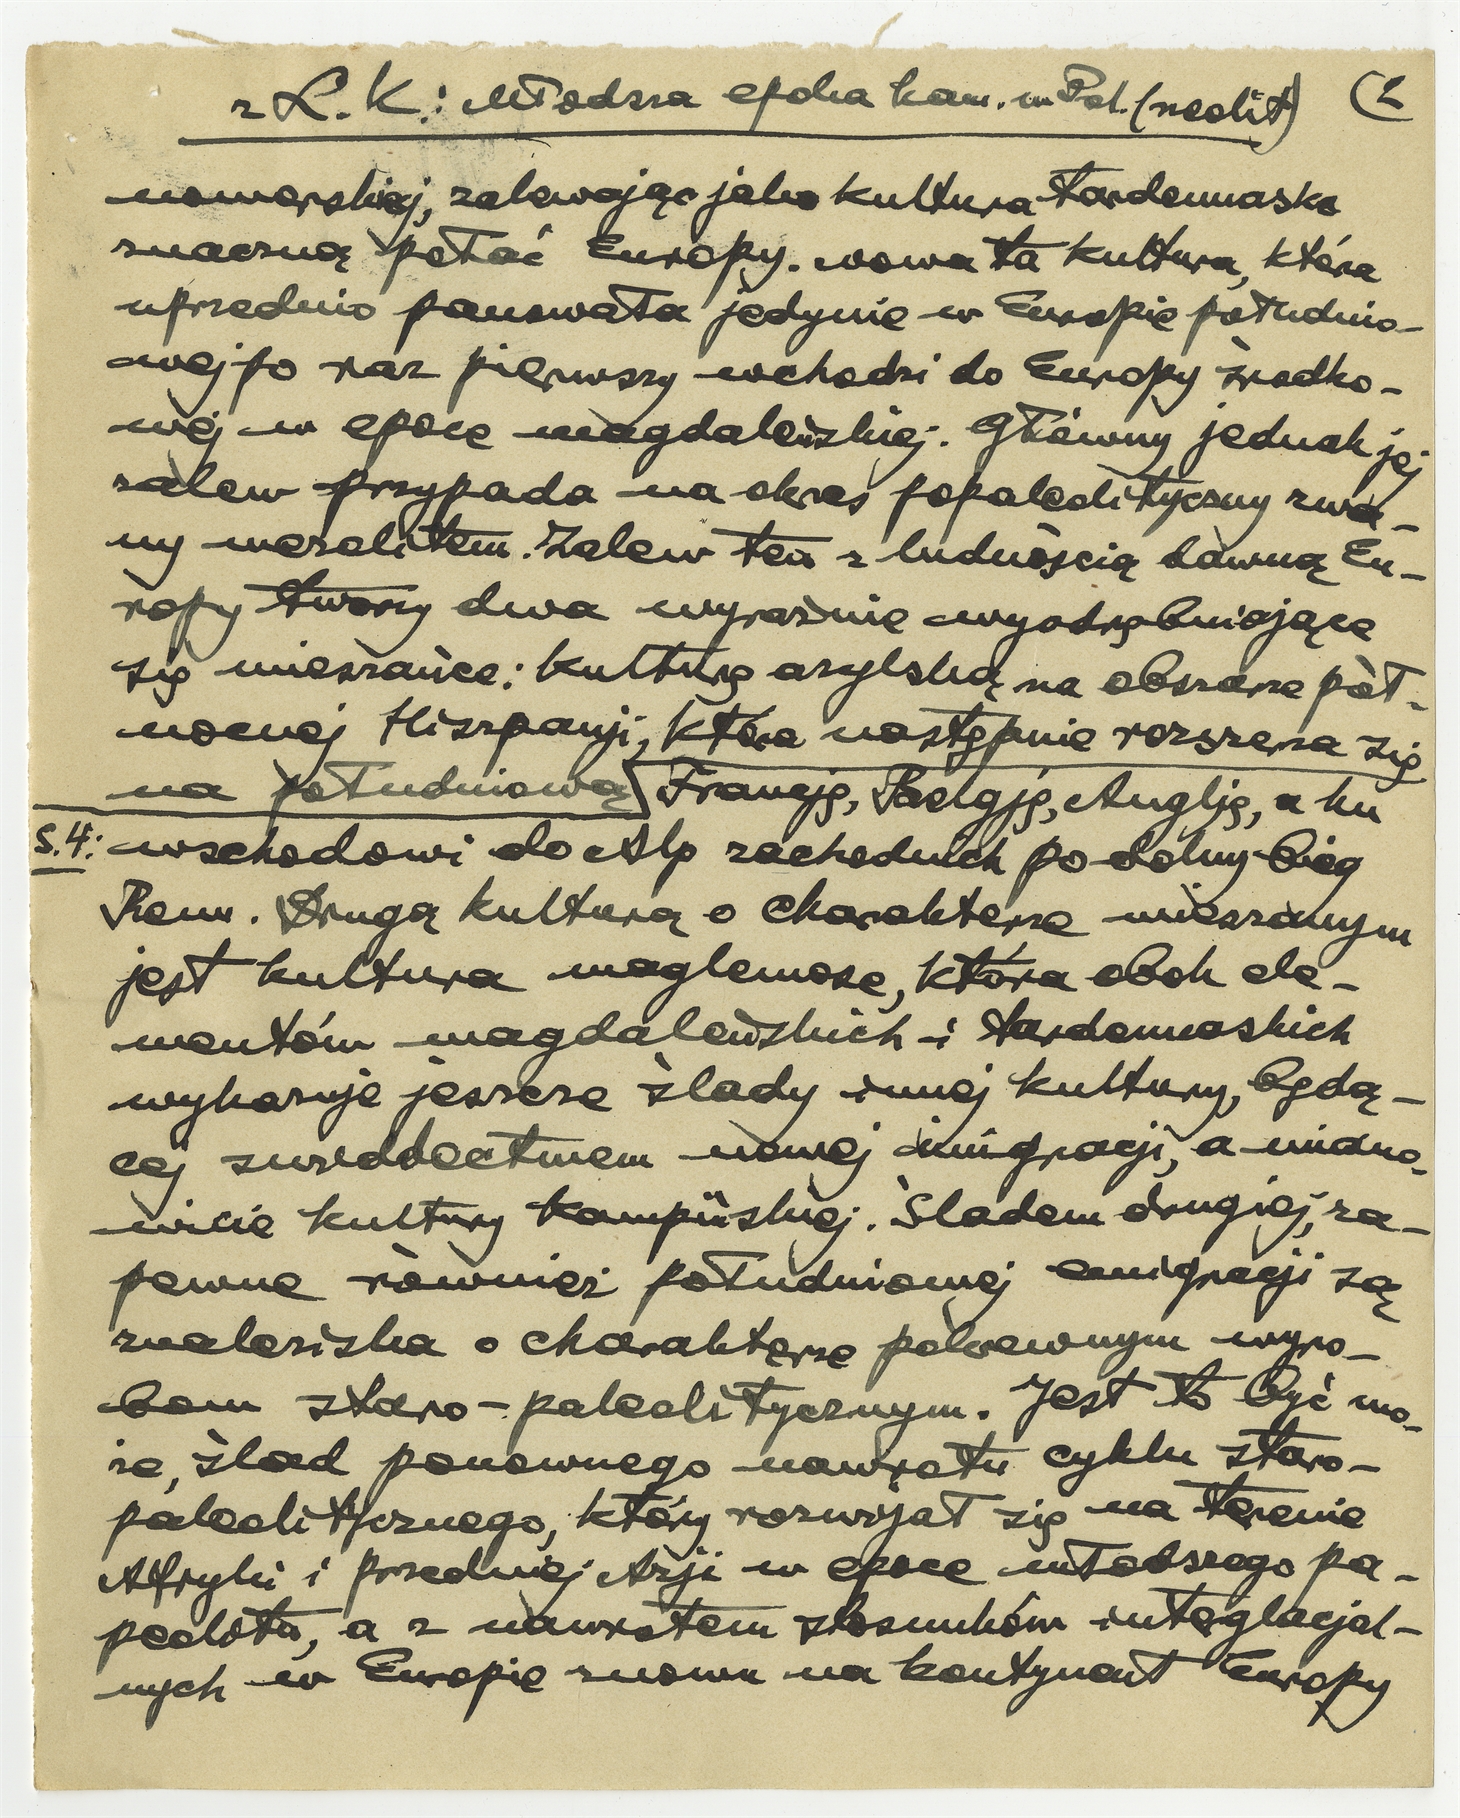 z L. K.: Młodsza epoka kam. w Pol. (neolit) (2
nomorskiej, zalewając jako kultura tardenuaska
znaczną połać Europy. Nowa ta kultura, która
uprzednio panowała jedynie w Europie południo-
wej po raz pierwszy wchodzi do Europy środko-
wej w epoce magdaleńskiej. Główny jednak jej
zalew przypada na okres popaleolityczny zwa-
ny mezolitem. Zalew ten z ludnością dawną Eu-
ropy tworzy dwa wyraźnie wyodrębniające
się mieszańce: kulturę azylską na obszarze pół-
nocnej Hiszpanji, która następnie rozszerza się
na południową Francję, Belgję, Anglję, a ku
s. 4: wschodowi do Alp zachodnich po dolny bieg
Renu. Drugą kulturą o charakterze mieszanym
jest kultura maglemose, która obok ele-
mentów magdaleńskich i tardenuaskich
wykazuje jeszcze ślady innej kultury, będą-
cej świadectwem nowej imigracji, a miano-
wicie kultury kampijskiej. Śladem drugiej, za-
pewne również południowej emigracji są
znaleziska o charakterze pokrewnym wyro-
bom staro-paleolitycznym. Jest to być mo-
że, ślad ponownego nawrotu cyklu staro-
paleolitycznego, który rozwijał się na terenie
Afryki i przedniej Azji w epoce młodszego pa-
peolitu, a z nawrotem stosunków interglacjal-
nych w Europie znowu na kontynent Europy